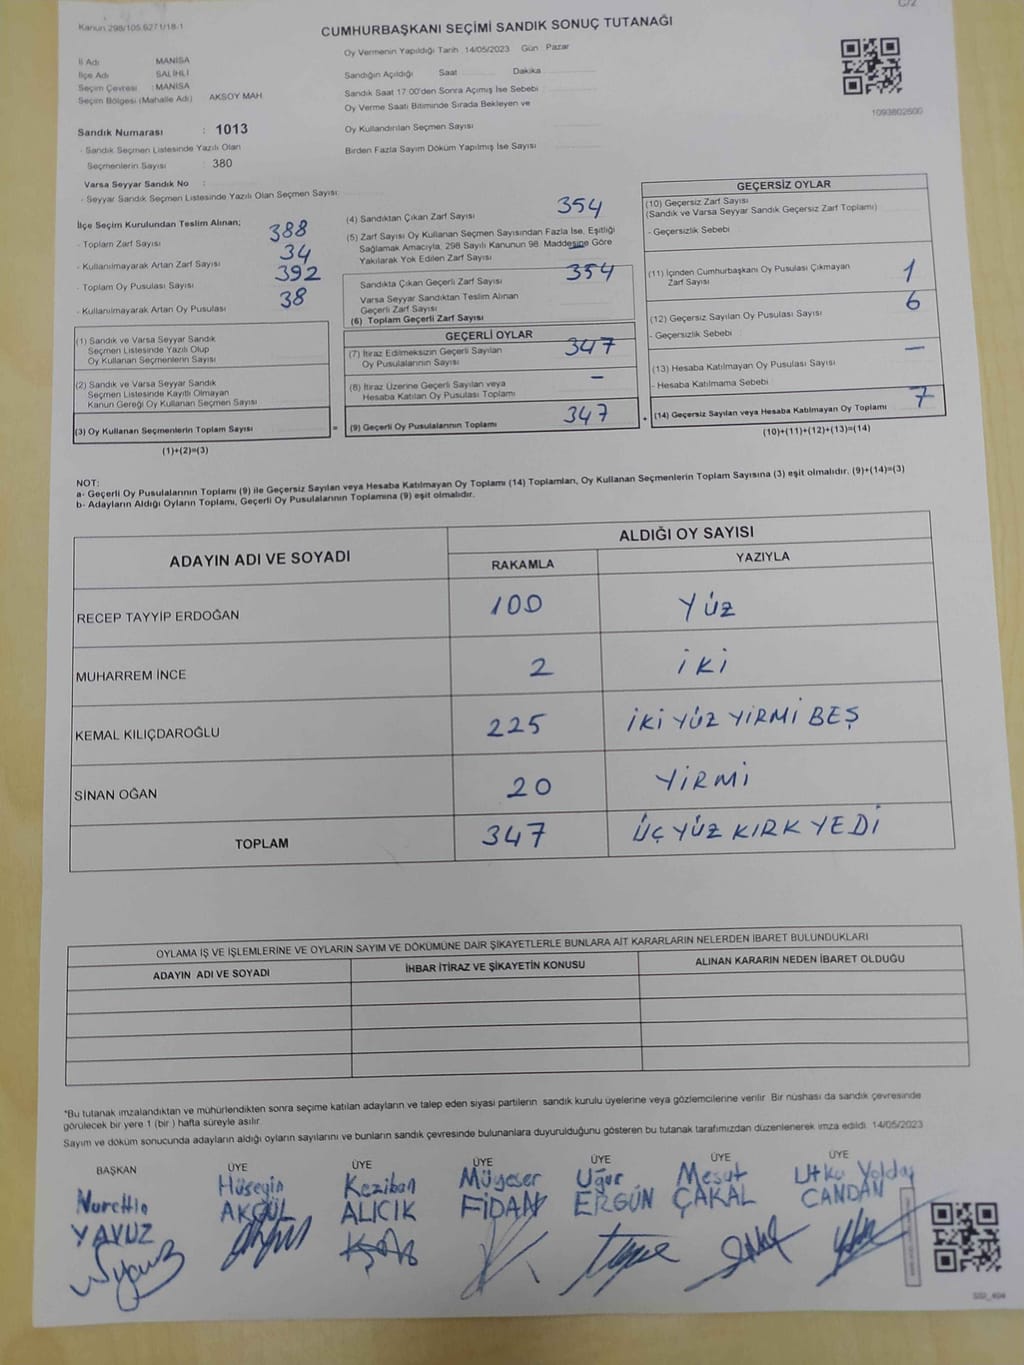 C/2
Kanun 298/105.6271/18-1
CUMHURBAŞKANI SEÇİMİ SANDIK SONUÇ TUTANAĞI
Oy Vermenin Yapıldığı Tarih : 14/05/2023 Gün : Pazar
İl Adı MANİSA
İlçe Adı SALİHLİ
Seçim Çevresi : MANİSA
Seçim Bölgesi (Mahalle Adı) AKSOY MAH
Sandığın Açıldığı Saat Dakika
Sandık Saat 17:00'den Sonra Açımış İse Sebebi
Oy Verme Saati Bitiminde Sırada Bekleyen ve
Oy Kullandırılan Seçmen Sayısı
Birden Fazla Sayım Döküm Yapılmış İse Sayısı
1093802600
Sandık Numarası : 1013
- Sandık Seçmen Listesinde Yazılı Olan
Seçmenlerin Sayısı : 380
Varsa Seyyar Sandık No :
- Seyyar Sandık Seçmen Listesinde Yazılı Olan Seçmen Sayısı:
İlçe Seçim Kurulundan Teslim Alınan;
- Toplam Zarf Sayısı 388
- Kullanılmayarak Artan Zarf Sayısı 34
- Toplam Oy Pusulası Sayısı 392
- Kullanılmayarak Artan Oy Pusulası 38
(1) Sandık ve Varsa Seyyar Sandık
Seçmen Listesinde Yazılı Olup
Oy Kullanan Seçmenlerin Sayısı
(2) Sandık ve Varsa Seyyar Sandık
Seçmen Listesinde Kayıtlı Olmayan
Kanun Gereği Oy Kullanan Seçmen Sayısı
(3) Oy Kullanan Seçmenlerin Toplam Sayısı
(1)+(2)=(3)
(4) Sandıktan Çıkan Zarf Sayısı 354
(5) Zarf Sayısı Oy Kullanan Seçmen Sayısından Fazla İse, Eşitliği
Sağlamak Amacıyla, 298 Sayılı Kanunun 98. Maddesine Göre
Yakılarak Yok Edilen Zarf Sayısı —
Sandıkta Çıkan Geçerli Zarf Sayısı 354
Varsa Seyyar Sandıktan Teslim Alınan
Geçerli Zarf Sayısı
(6) Toplam Geçerli Zarf Sayısı
GEÇERLİ OYLAR
(7) İtiraz Edilmeksizin Geçerli Sayılan
Oy Pusulalarının Sayısı 347
(8) İtiraz Üzerine Geçerli Sayılan veya
Hesaba Katılan Oy Pusulası Toplamı —
= (9) Geçerli Oy Pusulalarının Toplamı 347
GEÇERSİZ OYLAR
(10) Geçersiz Zarf Sayısı
(Sandık ve Varsa Seyyar Sandık Geçersiz Zarf Toplamı)
- Geçersizlik Sebebi
(11) İçinden Cumhurbaşkanı Oy Pusulası Çıkmayan
Zarf Sayısı 1
(12) Geçersiz Sayılan Oy Pusulası Sayısı 6
- Geçersizlik Sebebi
(13) Hesaba Katılmayan Oy Pusulası Sayısı —
- Hesaba Katılmama Sebebi
+ (14) Geçersiz Sayılan veya Hesaba Katılmayan Oy Toplamı 7
(10)+(11)+(12)+(13)=(14)
NOT:
a- Geçerli Oy Pusulalarının Toplamı (9) ile Geçersiz Sayılan veya Hesaba Katılmayan Oy Toplamı (14) Toplamları, Oy Kullanan Seçmenlerin Toplam Sayısına (3) eşit olmalıdır. (9)+(14)=(3)
b- Adayların Aldığı Oyların Toplamı, Geçerli Oy Pusulalarının Toplamına (9) eşit olmalıdır.
ADAYIN ADI VE SOYADI ALDIĞI OY SAYISI
RAKAMLA YAZIYLA
RECEP TAYYİP ERDOĞAN 100 YÜZ
MUHARREM İNCE 2 İKİ
KEMAL KILIÇDAROĞLU 225 İKİ YÜZ YİRMİ BEŞ
SİNAN OĞAN 20 YİRMİ
TOPLAM 347 ÜÇ YÜZ KIRK YEDİ
OYLAMA İŞ VE İŞLEMLERİNE VE OYLARIN SAYIM VE DÖKÜMÜNE DAİR ŞİKAYETLERLE BUNLARA AİT KARARLARIN NELERDEN İBARET BULUNDUKLARI
ADAYIN ADI VE SOYADI İHBAR İTİRAZ VE ŞİKAYETİN KONUSU ALINAN KARARIN NEDEN İBARET OLDUĞU
*Bu tutanak imzalandıktan ve mühürlendikten sonra seçime katılan adayların ve talep eden siyasi partilerin sandık kurulu üyelerine veya gözlemcilerine verilir. Bir nüshası da sandık çevresinde
görülecek bir yere 1 (bir ) hafta süreyle asılır.
Sayım ve döküm sonucunda adayların aldığı oyların sayılarını ve bunların sandık çevresinde bulunanlara duyurulduğunu gösteren bu tutanak tarafımızdan düzenlenerek imza edildi. 14/05/2023
BAŞKAN ÜYE ÜYE ÜYE ÜYE ÜYE ÜYE
Nurettin Hüseyin Keziban Müyeser Uğur Mesut Utku Yoldaş
YAVUZ AKGÜL ALICIK FİDAN ERGÜN ÇAKAL CANDAN